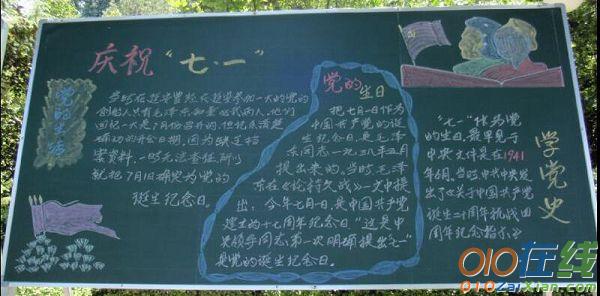 庆祝“七·一”
党的生活
当时在延安曾经大延安参加一大的党的
创始人只有毛泽东和董必武两人,他们
回忆一大是7月份召开的,但记不清楚
确切的开会日期,因为缺乏档
案资料,一时无法查征,所以
就把7月1日确定为党的
诞生纪念日。
党的
生日
把七月一日作为
中国共产党的诞
生纪念日,是毛泽
东同志一九三八年五月
提出来的,当时,毛泽
东在《论持久战》一文中提
出:今年七月一日,是中国共产党
建立的十七周年纪念日”这是中
央领导同志第一次明确提出“七一”
是党的诞生纪念日。
“七一”作为党
的生日,最早见于
中央文件是在1941
年6月,当时中共中央发
出了《关于中国共产党
诞生二十周年抗战四
周年纪念指示》
学党史
010在线
010ZaiXian.com